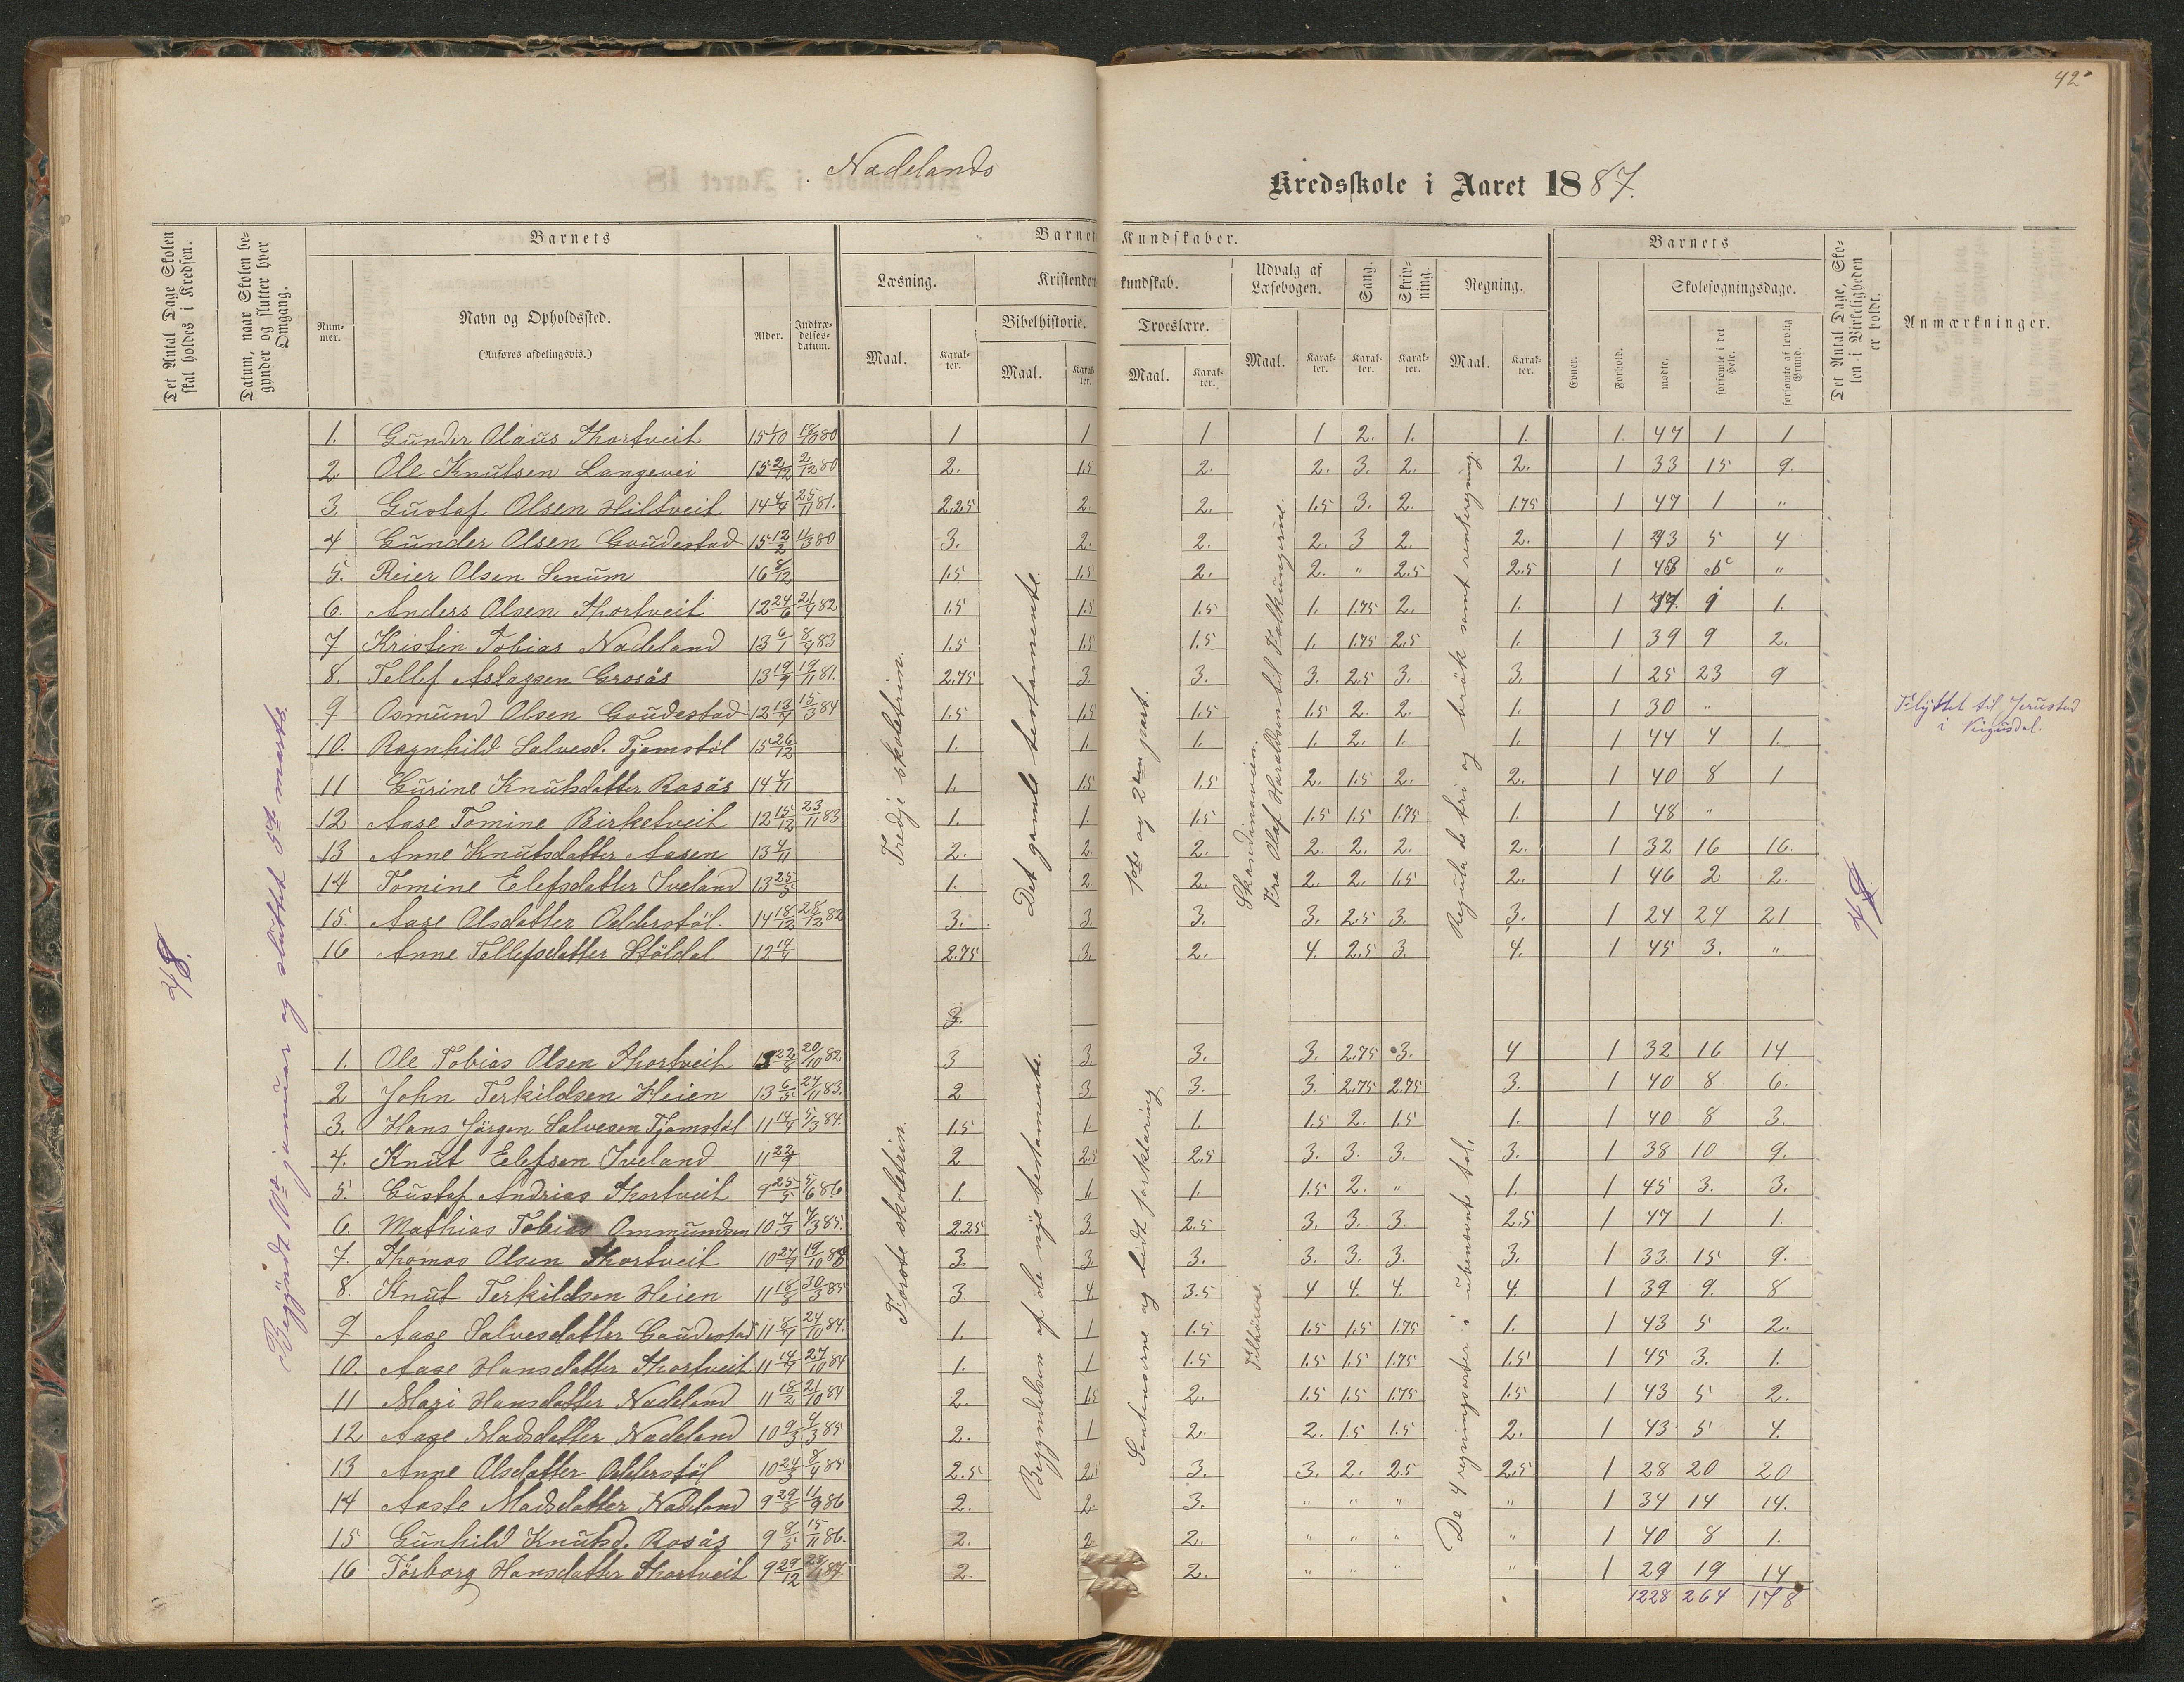 42
Nadelands
Kredsskole i Aaret 1887.
Det Antal Dage Skolen skal holdes i Kredsen.
Datum, naar Skolen begynder og slutter hver Omgang.
Barnets
Nummer.
Navn og Opholdssted.
(Anføres afdelingsvis.)
Alder.
Indtrædelsesdatum.
Læsning.
Maal.
Karakter.
Kristendom
Bibelhistorie.
Maal.
Kundskaber.
kundskab.
Troeslære.
Maal.
Karakter.
Udvalg af Læsebogen.
Maal.
Karakter.
Sang.
Karakter.
Skrivning.
Karakter.
Regning.
Maal.
Karakter.
Barnets
Evner.
Forhold.
Skolesøgningsdage.
mødte.
forsømte i det Hele.
forsømte af lovlig Grund.
Det Antal Dage, Skolen i Virkeligheden er holdt.
Anmærkninger.
48.
Begyndt 10de januar og sluttet 5te marts.
Tredje skoletrin.
Det gamle testamente.
1ste og 2den part.
Skandinavien.
Fra Olaf Haraldsøn til Folkungerne.
Regula de tri og brök samt rentereguing.
48
1. Gunder Olaus Thortveit 15 1/10 18/10 80 1 1 1 1 2. 1. 1. 1. 47 1 1
2 Ole Knutsen Langevei 15 2/12 2/12 80 2. 1.5 2. 2. 3. 2. 2. 1 33 15 9.
3. Gustaf Olsen Hiltveit 14 4/9 25/11 81. 2.25 2. 2. 1.5 3. 2. 1.75 1 47 1 "
4 Gunder Olsen Goudestad 15 12/2 11/3 80 3. 2. 2. 2. 3 2. 2. 1 43 5 4
5. Reier Olsen Senum 16 8/12 1.5 1.5 2. 2. " 2.5 2.5 1 48 "
6. Anders Olsen Thortveit 12 24/6 21/9 82 1.5 1.5 1.5 1. 1.75 2. 1. 1 1 1.
7 Kristin Tobias Nadeland 13 6/1 8/9 83 1.5 1.5 1.5 1. 1.75 2.5 1. 1 39 9 2.
8. Tellef Aslagsen Grosås 13 19/9 19/11 81. 2.75 3 3. 3. 2.5 3. 3. 1 25 23 9
9 Osmund Olsen Goudestad 12 13/9 15/3 84 1.5 1.5 1.5 1.5 2. 2. 1. 1 30 " Flyttet til Jerustad i Vigusdal.
10. Ragnhild Salvesd. Tjomstøl 15 26/12 1. 1. 1. 1. 2. 1. 1. 1 44 4 1.
11 Gurine Knutsdatter Rosås 14 4/11 1. 1.5 1.5 2. 1.5 2. 2. 1 40 8 1
12 Aase Tomine Birketveit 12 15/12 23/11 83 1. 1 1.5 1.5 1.5 1.75 1. 1 48 "
13 Anne Knutsdatter Aasen 13 4/11 2. 2. 2. 2. 2. 2. 2. 1 32 16 16.
14 Tomine Elefsdatter Iveland 13 25/5 1. 2. 2. 2. 2. 1.5 2. 1 46 2 2.
15. Aase Olsdatter Odderstöl. 14 18/12 28/12 82 3. 3 3. 3. 2.5 3. 3. 1 24 24 21
16 Anne Tellefsdatter Stöldal 12 14/9 2.75 3. 2. 4. 2.5 3. 4. 1 45 3. "
3.
Første skoletrin.
Begyndelsen af de nye testamente.
Sentenserne og lidt forklaring
Filhörere.
De 4 regningsarter i ubenævnt tal,
1. Ole Tobias Olsen Thortveit 22/8 20/10 82 3 3. 3. 3. 2.75 3. 4 1 32 16 14
2 John Terkildsen Heien 13 6/5 27/11 83. 2 3 3. 3. 2.75 2.75 3. 1 40 8 6.
3. Hans Jörgen Salvesen Tjomstøl 11 14/9 5/3 84. 1.5 1 1. 1.5 2. 1.5 1. 1 40 8 3.
4. Knut Elefsen Iveland 11 22/9 2 2.5 2.5 3. 3. 3. 3. 1 38 10 9.
5. Gustaf Andrias Thortveit 9 25/5 5/6 86 1. 1. 1. 1.5 2. " 1. 1 45 3. 3.
6. Mathias Tobias Ommundsen 10 7/3 7/3 85. 2.25 3 2.5 3. 3. 3. 2.5 1 47 1 1.
7. Thomas Olsen Thortveit 10 27/9 19/10 3. 3 3. 3. 3. 3. 3. 1 33. 15 9.
8. Knut Terkildsen Heien 11 18/8 30/3 85 3. 4 3.5 4 4. 4. 4. 1 39 9. 8
9 Aase Salvesdatter Goudestad 11 8/9 24/10 84. 1. 1 1.5 1.5 1.5 1.75 1. 1 43 5 2.
10. Aase Hansdatter Thortveit 11 14/9 27/10 84 1. 1 1.5 1.5 1.5 1.75 1.5 1 45 3. 1.
11 Mari Hansdatter Nadeland 11 18/2 21/10 84 2. 1.5 2. 1.5 1.5 1.75 1.5 1 43 5 2.
12 Aase Madsdatter Nadeland 10 9/3 4/3 85 2. 1 2. 2. 1.5 1.5 2. 1 43 5 4.
13 Anne Olsdatter Odderstöl 10 24/3 8/4 85 2.5 2.5 3. 3. 2. 2.5 2.5 1 28 20 20
14 Aaste Madsdatter Nadeland 9 29/8 11/9 86 2. 2. 3. " " " " 1 34 14 14.
15 Gunhild Knutsd. Rosås 9 8/5 15/11 86. 2. 2 2. " " " " 1 40 8 1.
16 Törborg Hansdatter Thortveit 9 29/12 87 2. 2. " " " " 1 29 19 14
1228 264 178